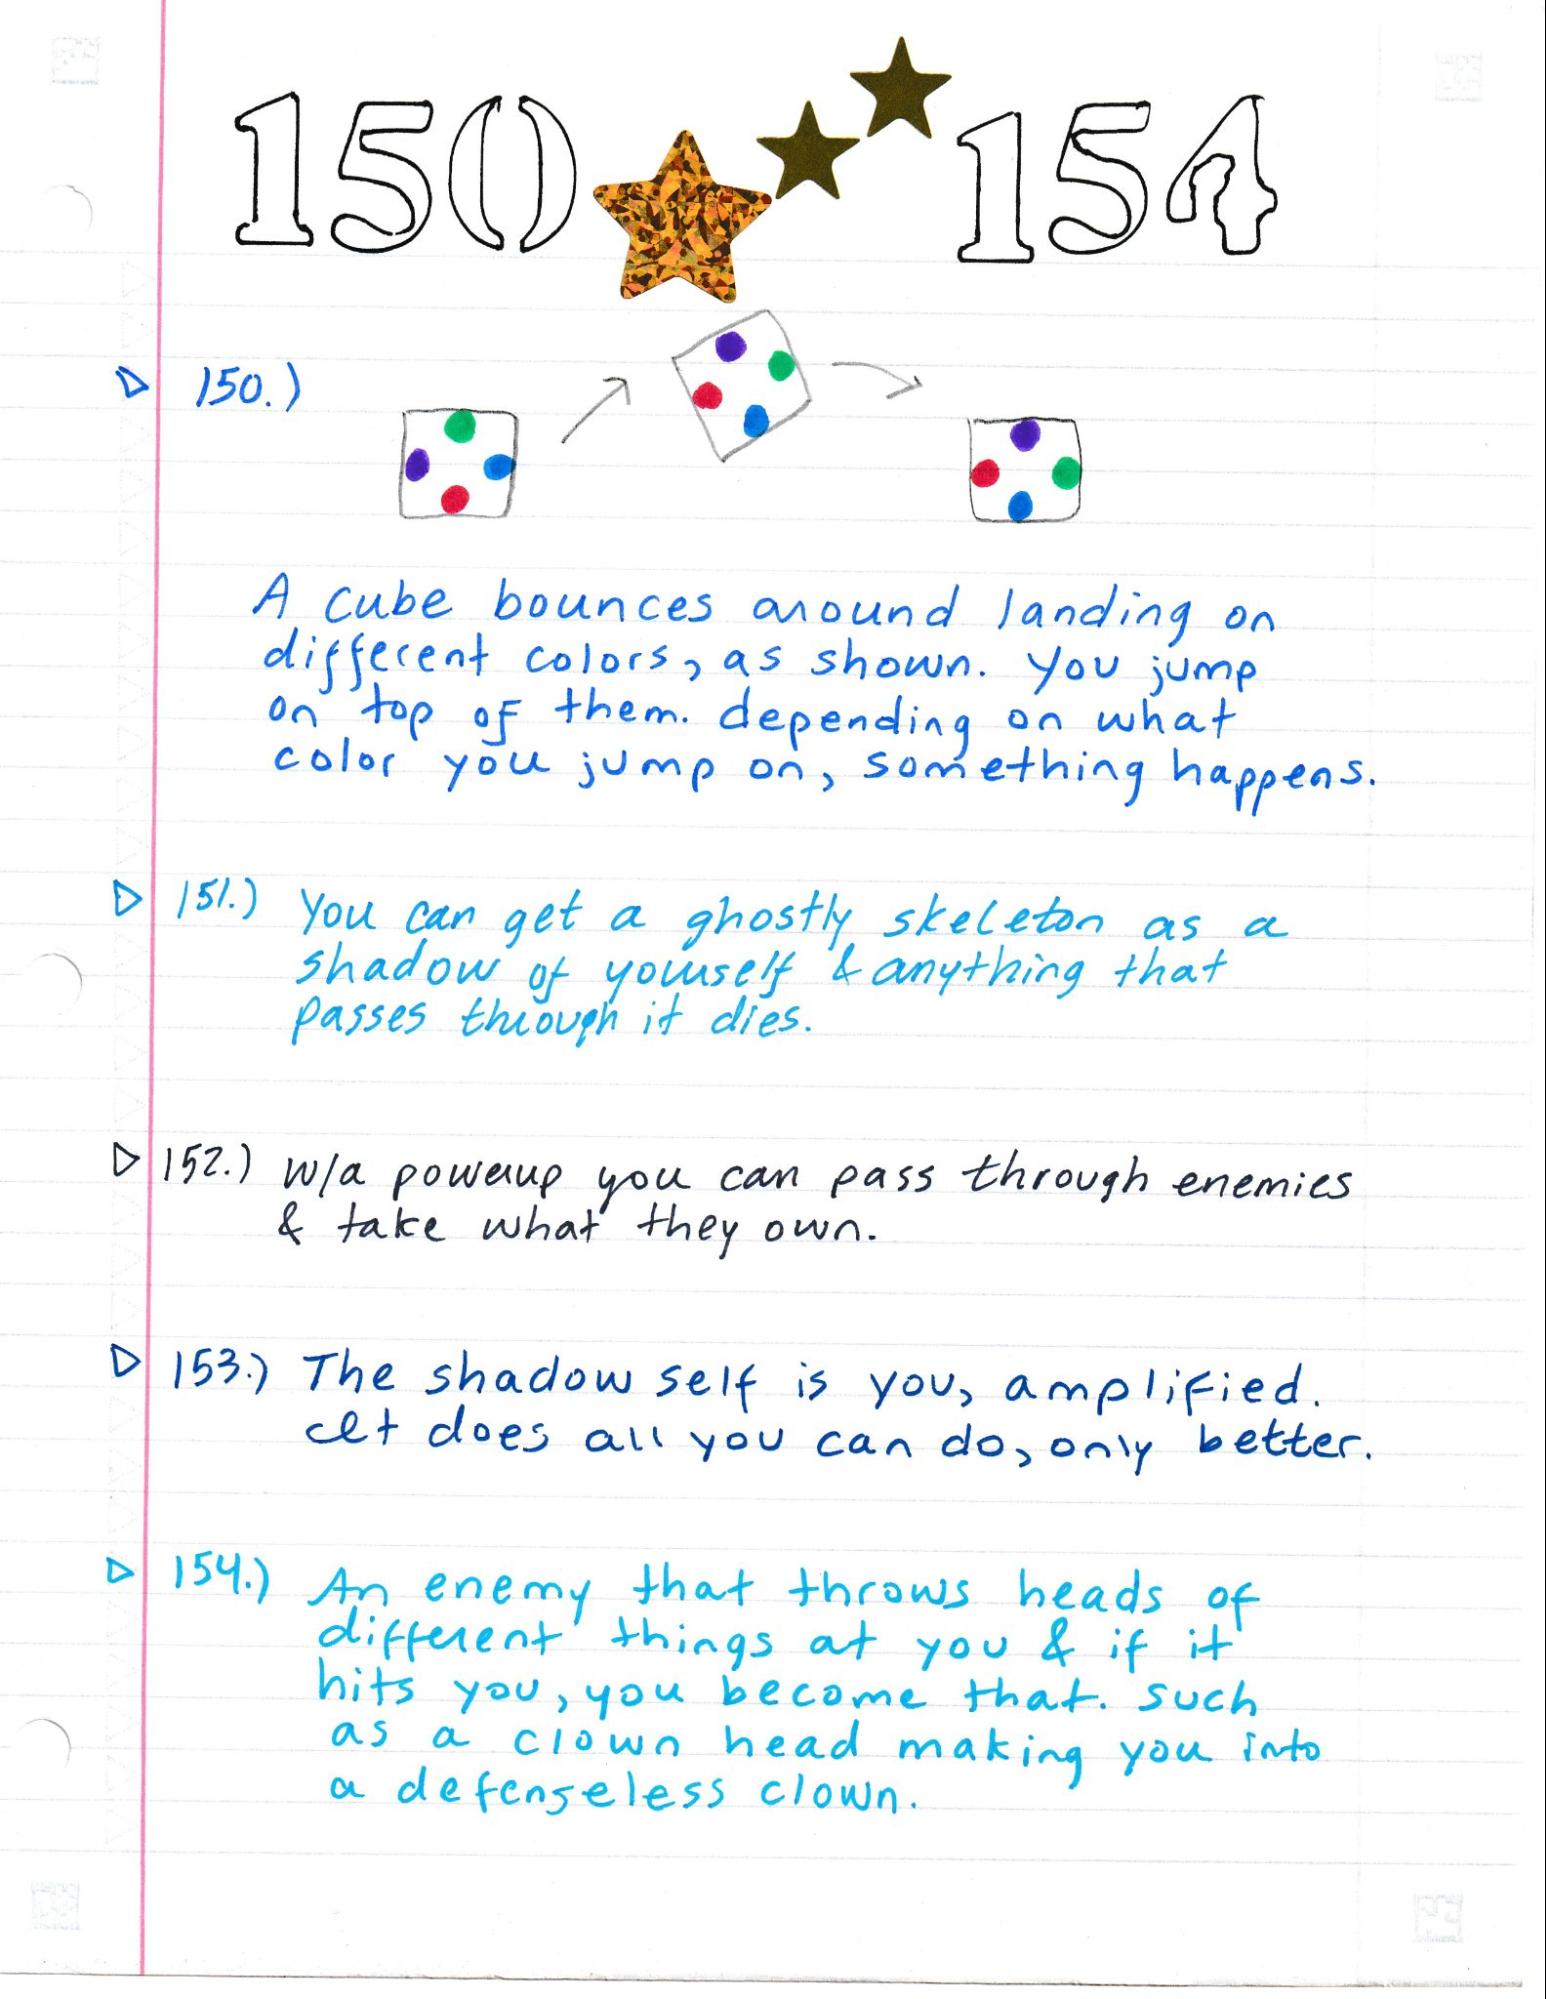 150 154
150.)
A cube bounces around landing on
different colors, as shown. You jump
on top of them. depending on what
color you jump on, something happens.
151.) You can get a ghostly skeleton as a
shadow of yourself & anything that
passes through it dies.
152.) w/a powerup you can pass through enemies
& take what they own.
153.) The shadow self is you, amplified.
It does all you can do, only better.
154.) An enemy that throws heads of
different things at you & if it
hits you, you become that. such
as a clown head making you into
a defenseless clown.